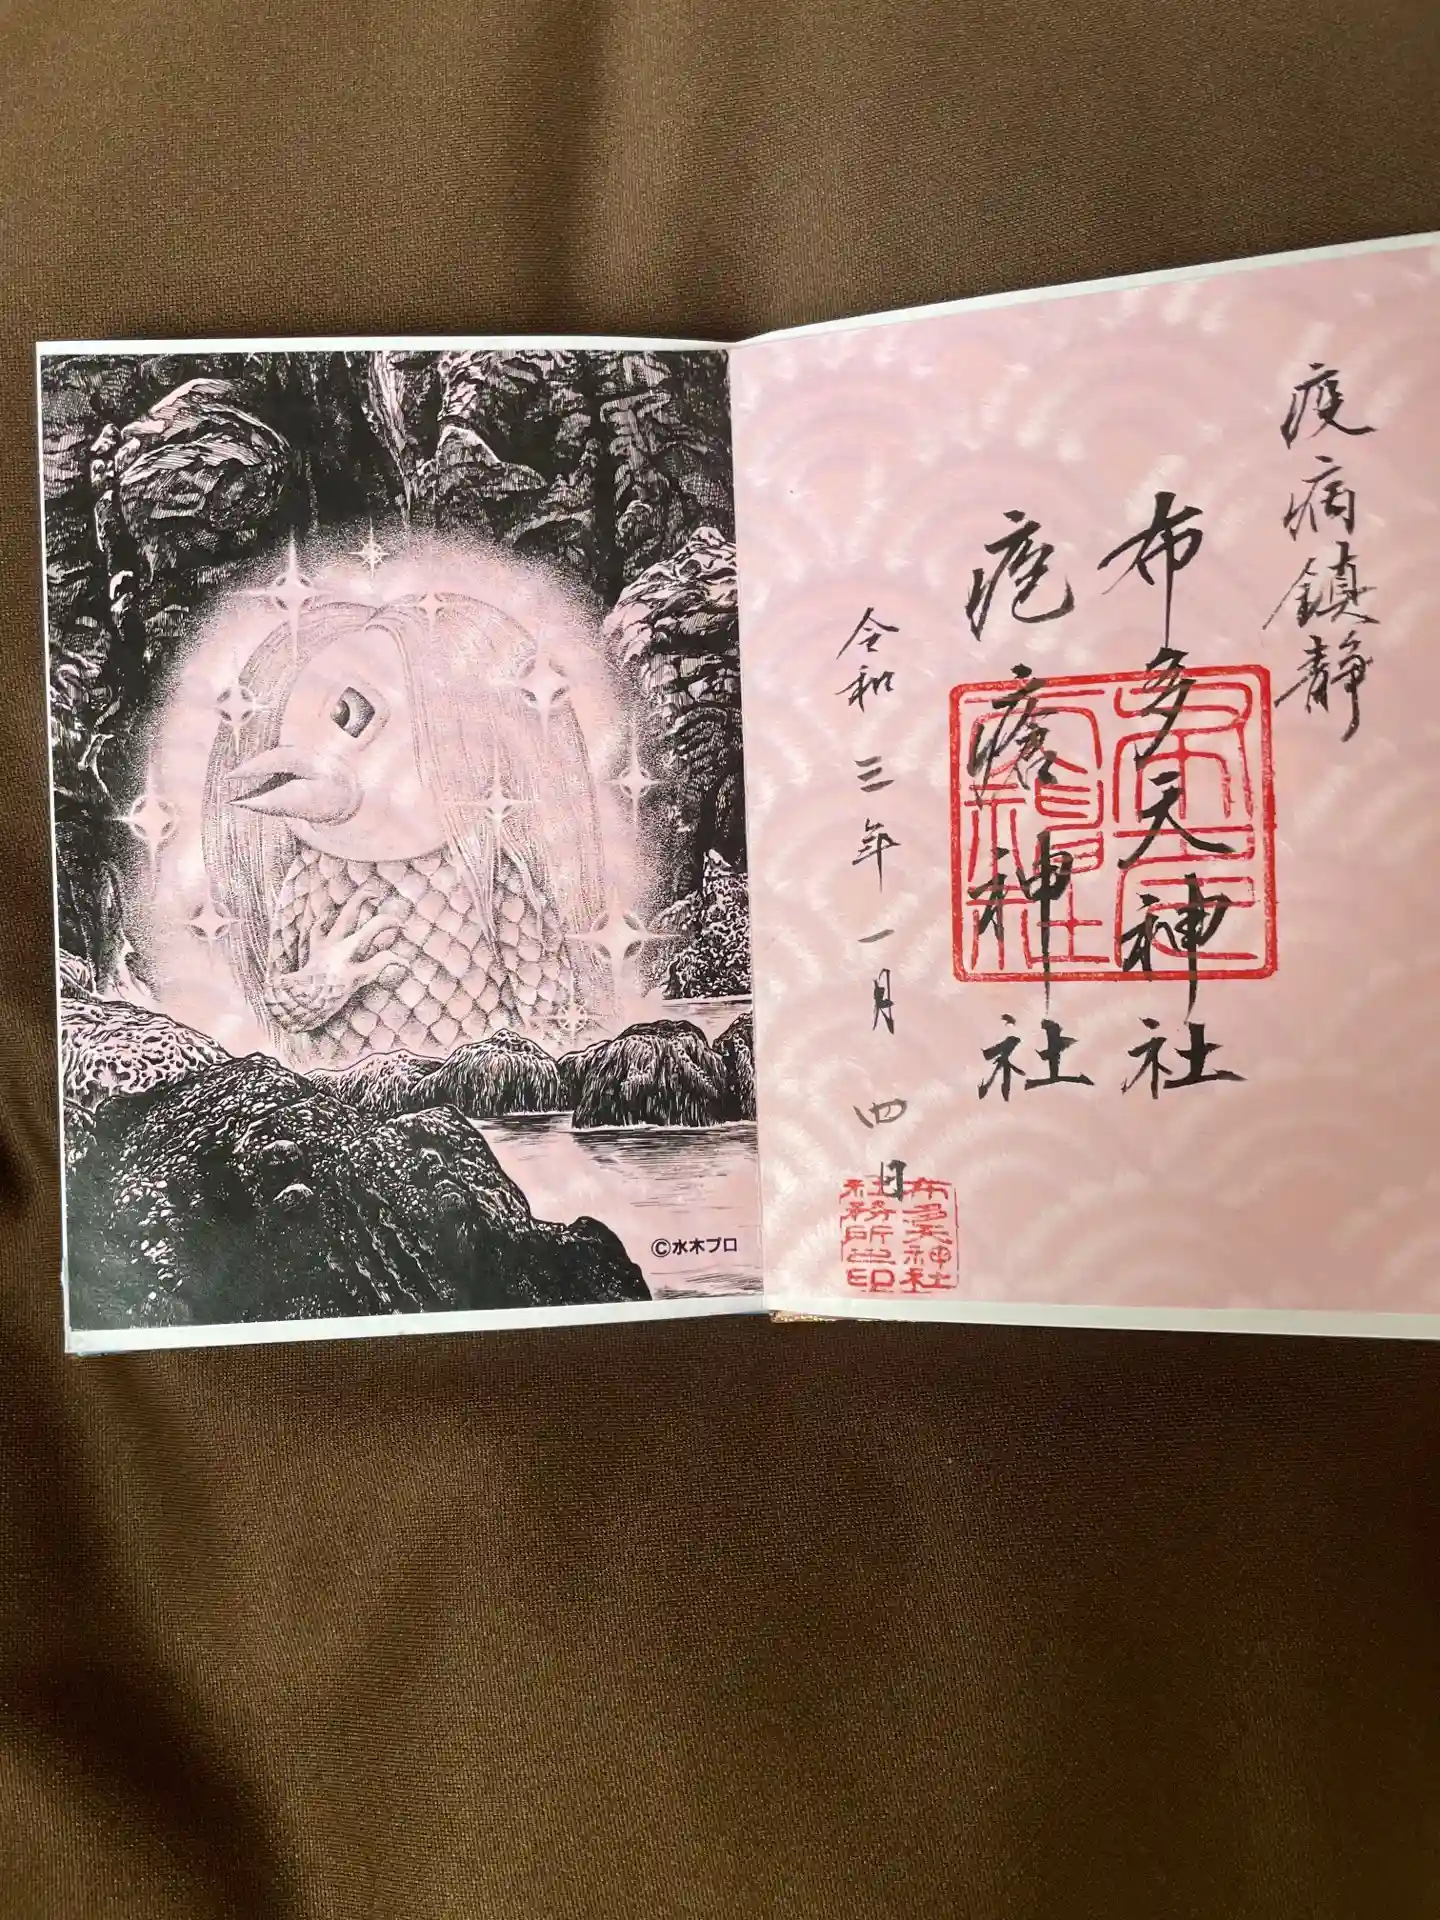 疫病鎮静
布多天神社
疱瘡神社
令和三年一月四日
布多天神社
社務所之印
©水木プロ